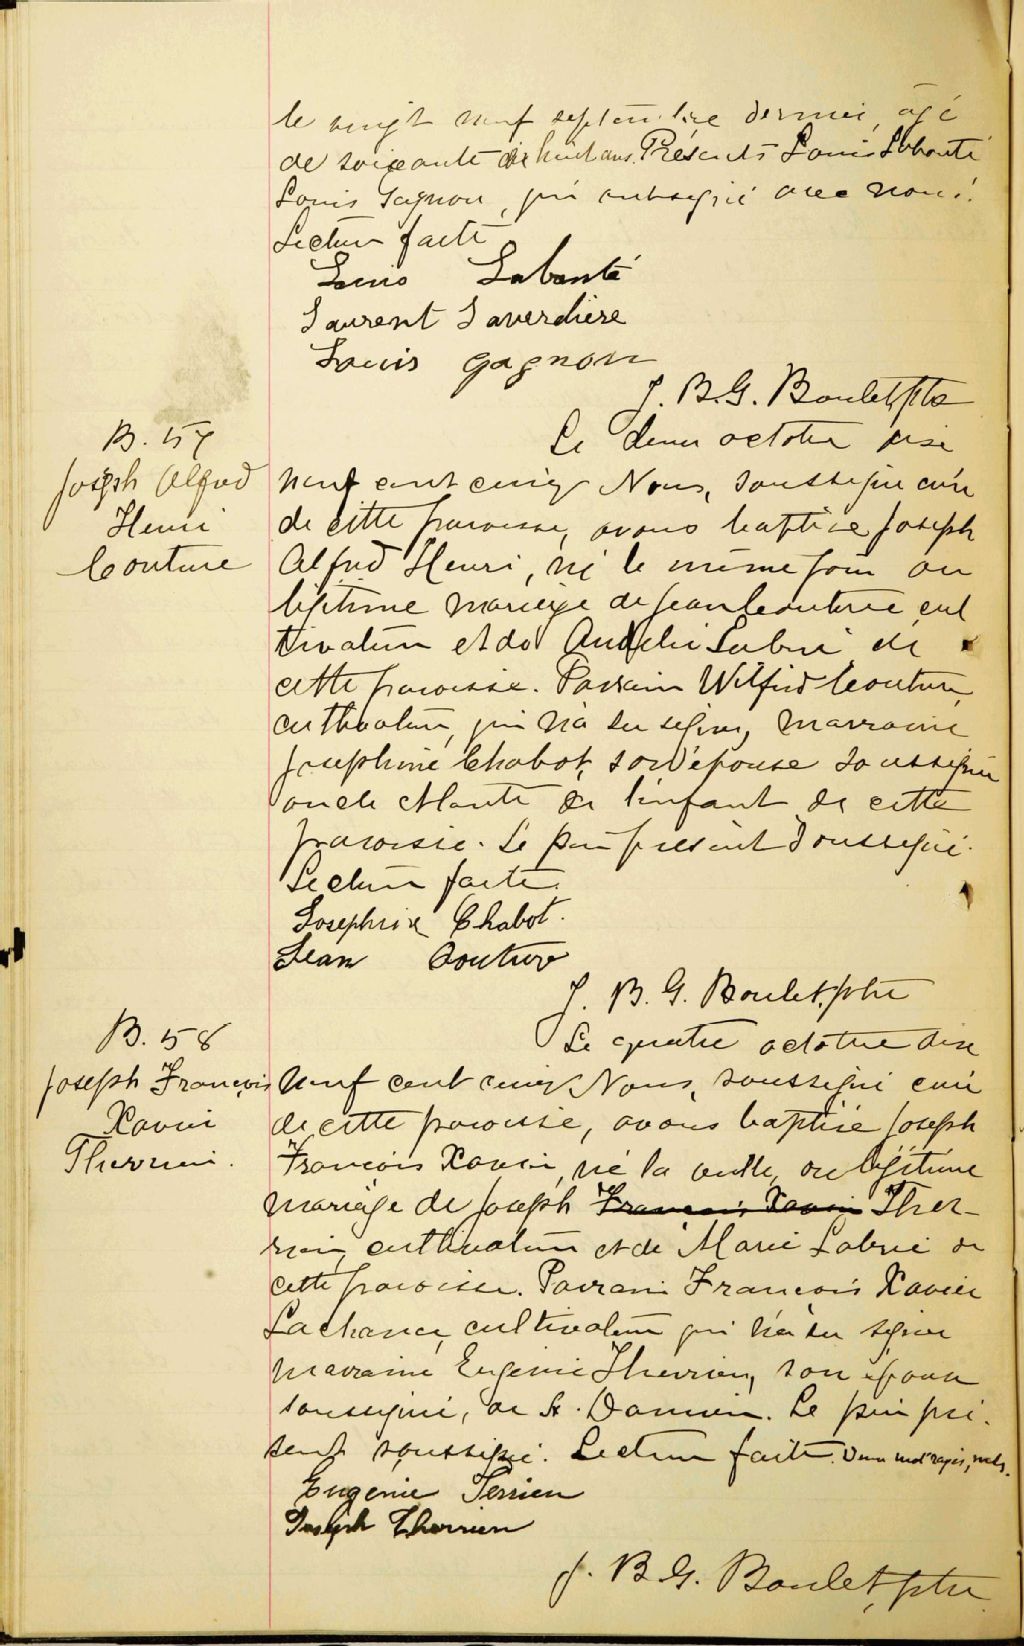 le vingt neuf septembre dernier, âgé
de soixante dix huit ans. Présents Louis Labonté
Louis Gagnon, qui soussigné avec nous.
Lecture faite
Louis Labonté
Laurent Laverdière
Louis Gagnon
J. B. G. Boulet, ptre
B. 57
Joseph Alfred
Henri
Couture
Le deux octobre dix
neuf cent cinq Nous, soussigné curé
de cette paroisse, avons baptisé Joseph
Alfred Henri, né le même jour du
légitime mariage de Jean Couture cul
tivateur et de Aurélie Labrie de
cette paroisse. Parrain Wilfrid Couture
cultivateur, qui n'a su signer, marraine
Joséphine Chabot, son épouse soussignée
oncle et tante de l'enfant de cette
paroisse. Le père présent soussigné.
Lecture faite.
Josephine Chabot.
Jean Couture
J. B. G. Boulet, ptre
B. 58
Joseph François
Xavier
Therrien.
Le quatre octobre dix
neuf cent cinq Nous, soussigné curé
de cette paroisse, avons baptisé Joseph
François Xavier, né la veille, du légitime
mariage de Joseph François Xavier Ther-
rien, cultivateur et de Marie Labrie de
cette paroisse. Parrain François Xavier
Lachance, cultivateur qui n'a su signer
marraine Eugénie Therrien, son épouse
soussignée, de St. Damien. Le père pré-
sent soussigné. Lecture faite. Deux mots rayés, nuls.
Eugénie Terrien
Joseph Therrien
J. B. G. Boulet, ptre